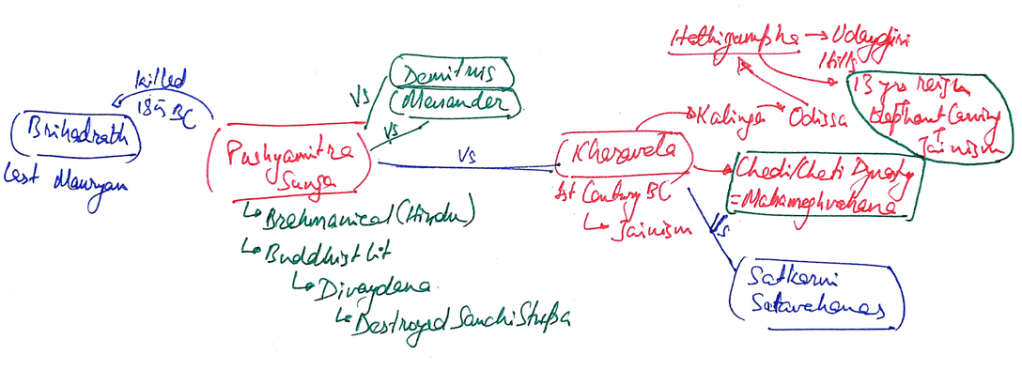 killed
185 BC
Brihadrath
Last Mauryan
Pushyamitra
Sunga
Vs
Demitrus
Menander
Vs
Vs
Brahmanical (Hindu)
Buddhist Lit
Divaydana
Destroyed Sanchi Stupa
Kharavela
1st Century BC
Jainism
Kalinga
Odissa
Hathigumpha → Udaygiri
Hills
13 yrs reign
Elephant Carving
Jainism
Chedi/Cheti Dynasty
= Mahameghvahana
Vs
Satkarni
Satavahanas